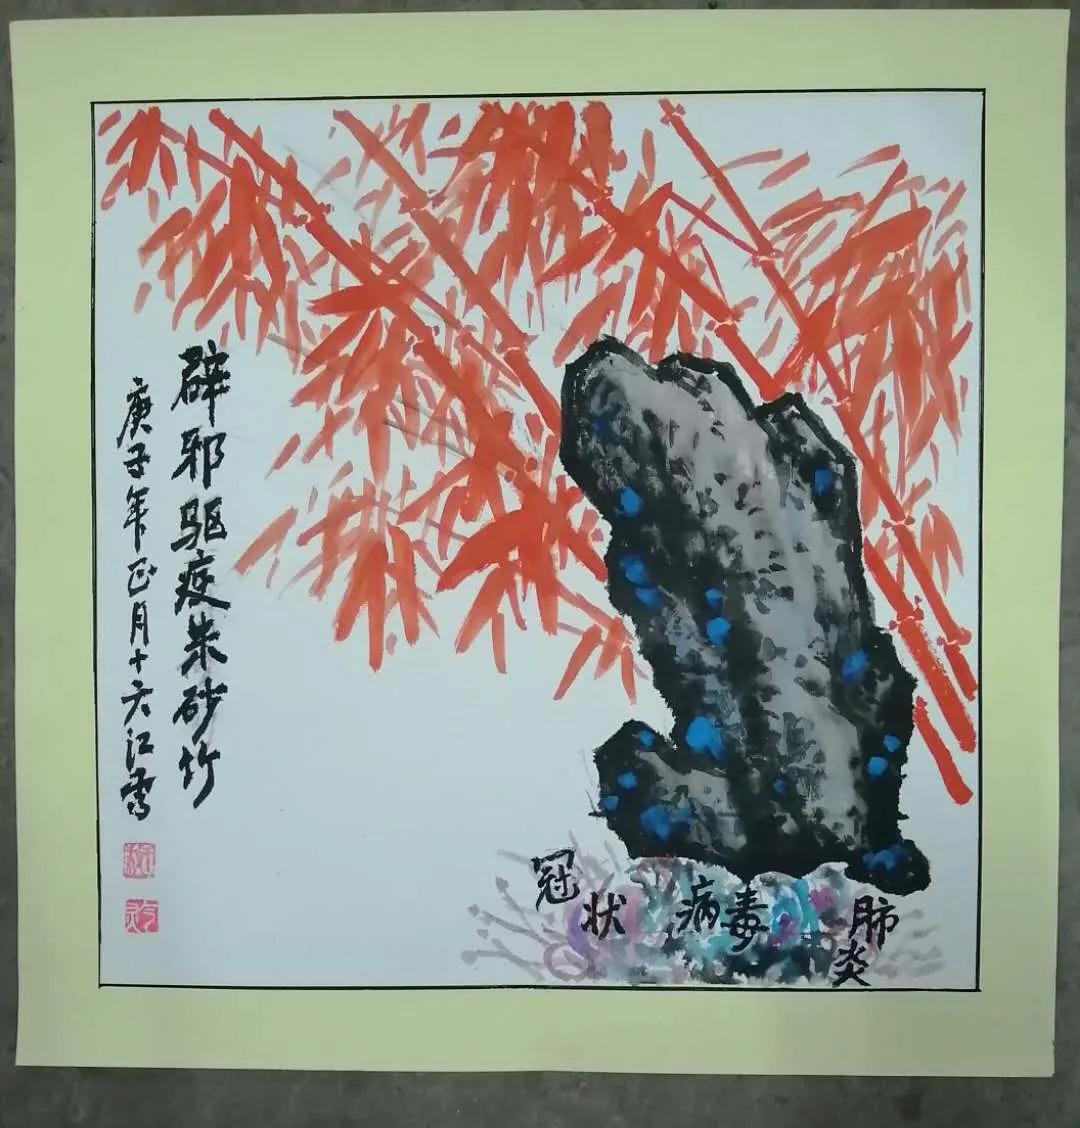 辟邪驱疫朱砂竹
庚子年正月十六江雪
冠状病毒肺炎